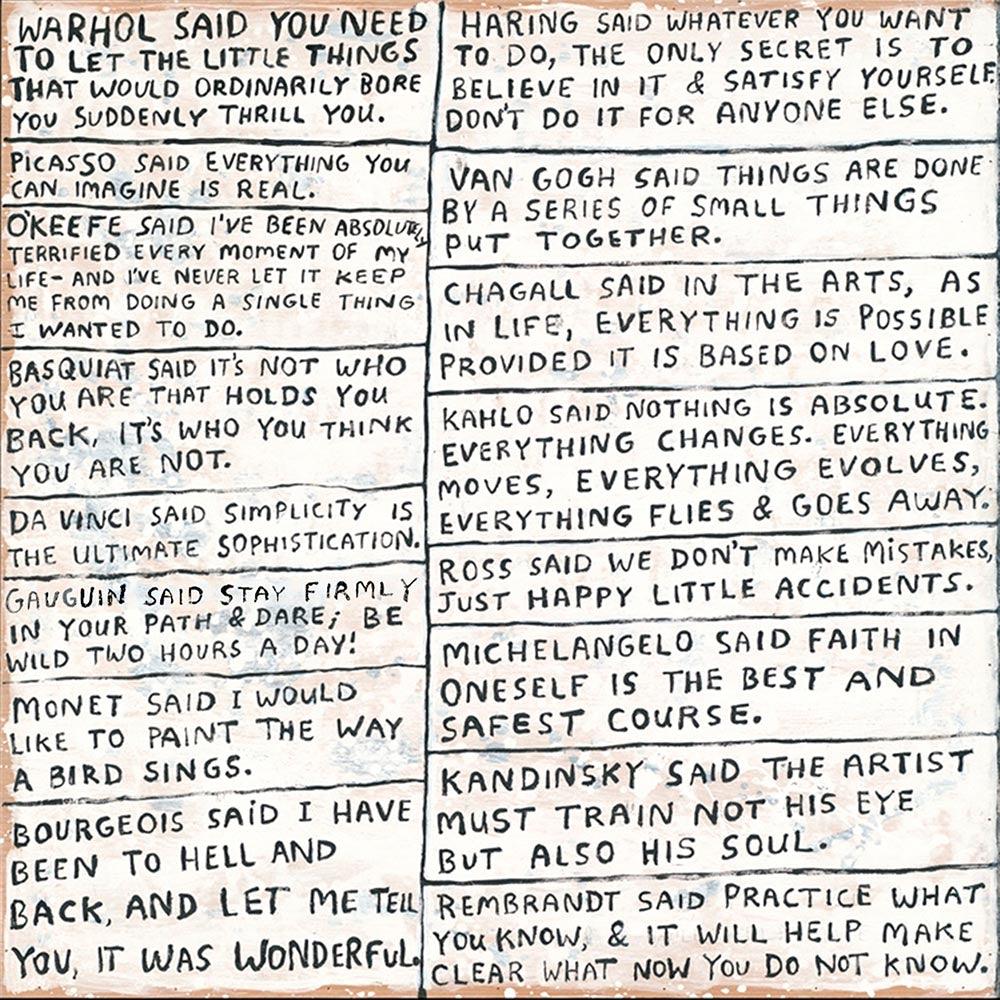 WARHOL SAID YOU NEED
TO LET THE LITTLE THINGS
THAT WOULD ORDINARILY BORE
YOU SUDDENLY THRILL YOU.
PICASSO SAID EVERYTHING YOU
CAN IMAGINE IS REAL.
O'KEEFE SAID I'VE BEEN ABSOLUTELY
TERRIFIED EVERY MOMENT OF MY
LIFE- AND I'VE NEVER LET IT KEEP
ME FROM DOING A SINGLE THING
I WANTED TO DO.
BASQUIAT SAID IT'S NOT WHO
YOU ARE THAT HOLDS YOU
BACK, IT'S WHO YOU THINK
YOU ARE NOT.
DA VINCI SAID SIMPLICITY IS
THE ULTIMATE SOPHISTICATION.
GAUGUIN SAID STAY FIRMLY
IN YOUR PATH & DARE; BE
WILD TWO HOURS A DAY!
MONET SAID I WOULD
LIKE TO PAINT THE WAY
A BIRD SINGS.
BOURGEOIS SAID I HAVE
BEEN TO HELL AND
BACK, AND LET ME TELL
YOU, IT WAS WONDERFUL.
HARING SAID WHATEVER YOU WANT
TO DO, THE ONLY SECRET IS TO
BELIEVE IN IT & SATISFY YOURSELF
DON'T DO IT FOR ANYONE ELSE.
VAN GOGH SAID THINGS ARE DONE
BY A SERIES OF SMALL THINGS
PUT TOGETHER.
CHAGALL SAID IN THE ARTS, AS
IN LIFE, EVERYTHING IS POSSIBLE
PROVIDED IT IS BASED ON LOVE.
KAHLO SAID NOTHING IS ABSOLUTE.
EVERYTHING CHANGES. EVERYTHING
MOVES, EVERYTHING EVOLVES,
EVERYTHING FLIES & GOES AWAY.
ROSS SAID WE DON'T MAKE MISTAKES,
JUST HAPPY LITTLE ACCIDENTS.
MICHELANGELO SAID FAITH IN
ONESELF IS THE BEST AND
SAFEST COURSE.
KANDINSKY SAID THE ARTIST
MUST TRAIN NOT HIS EYE
BUT ALSO HIS SOUL.
REMBRANDT SAID PRACTICE WHAT
YOU KNOW, & IT WILL HELP MAKE
CLEAR WHAT NOW YOU DO NOT KNOW.